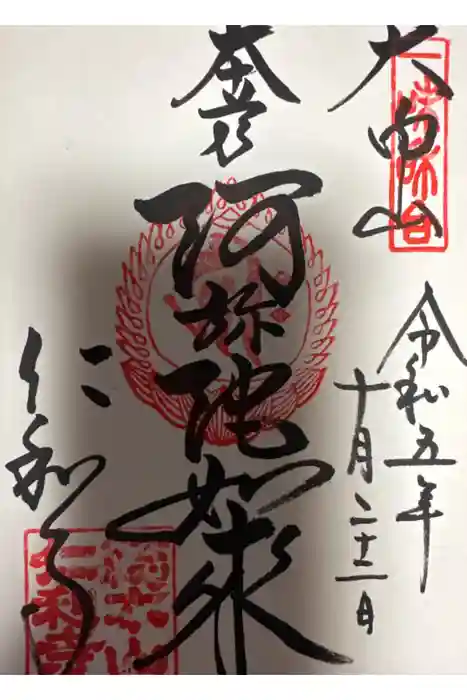 大内山
令和五年
十月二十二日
本尊
阿弥陀如来
仁和寺
総本山
仁和寺